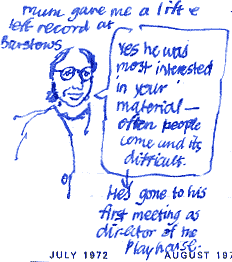 mum gave me a lift &
left record at
Barstows
Yes he was
most interested
in your
material—
often people
come and its
difficult.
He's gone to his
first meeting as
director of the
Playhouse.
JULY 1972
AUGUST 197